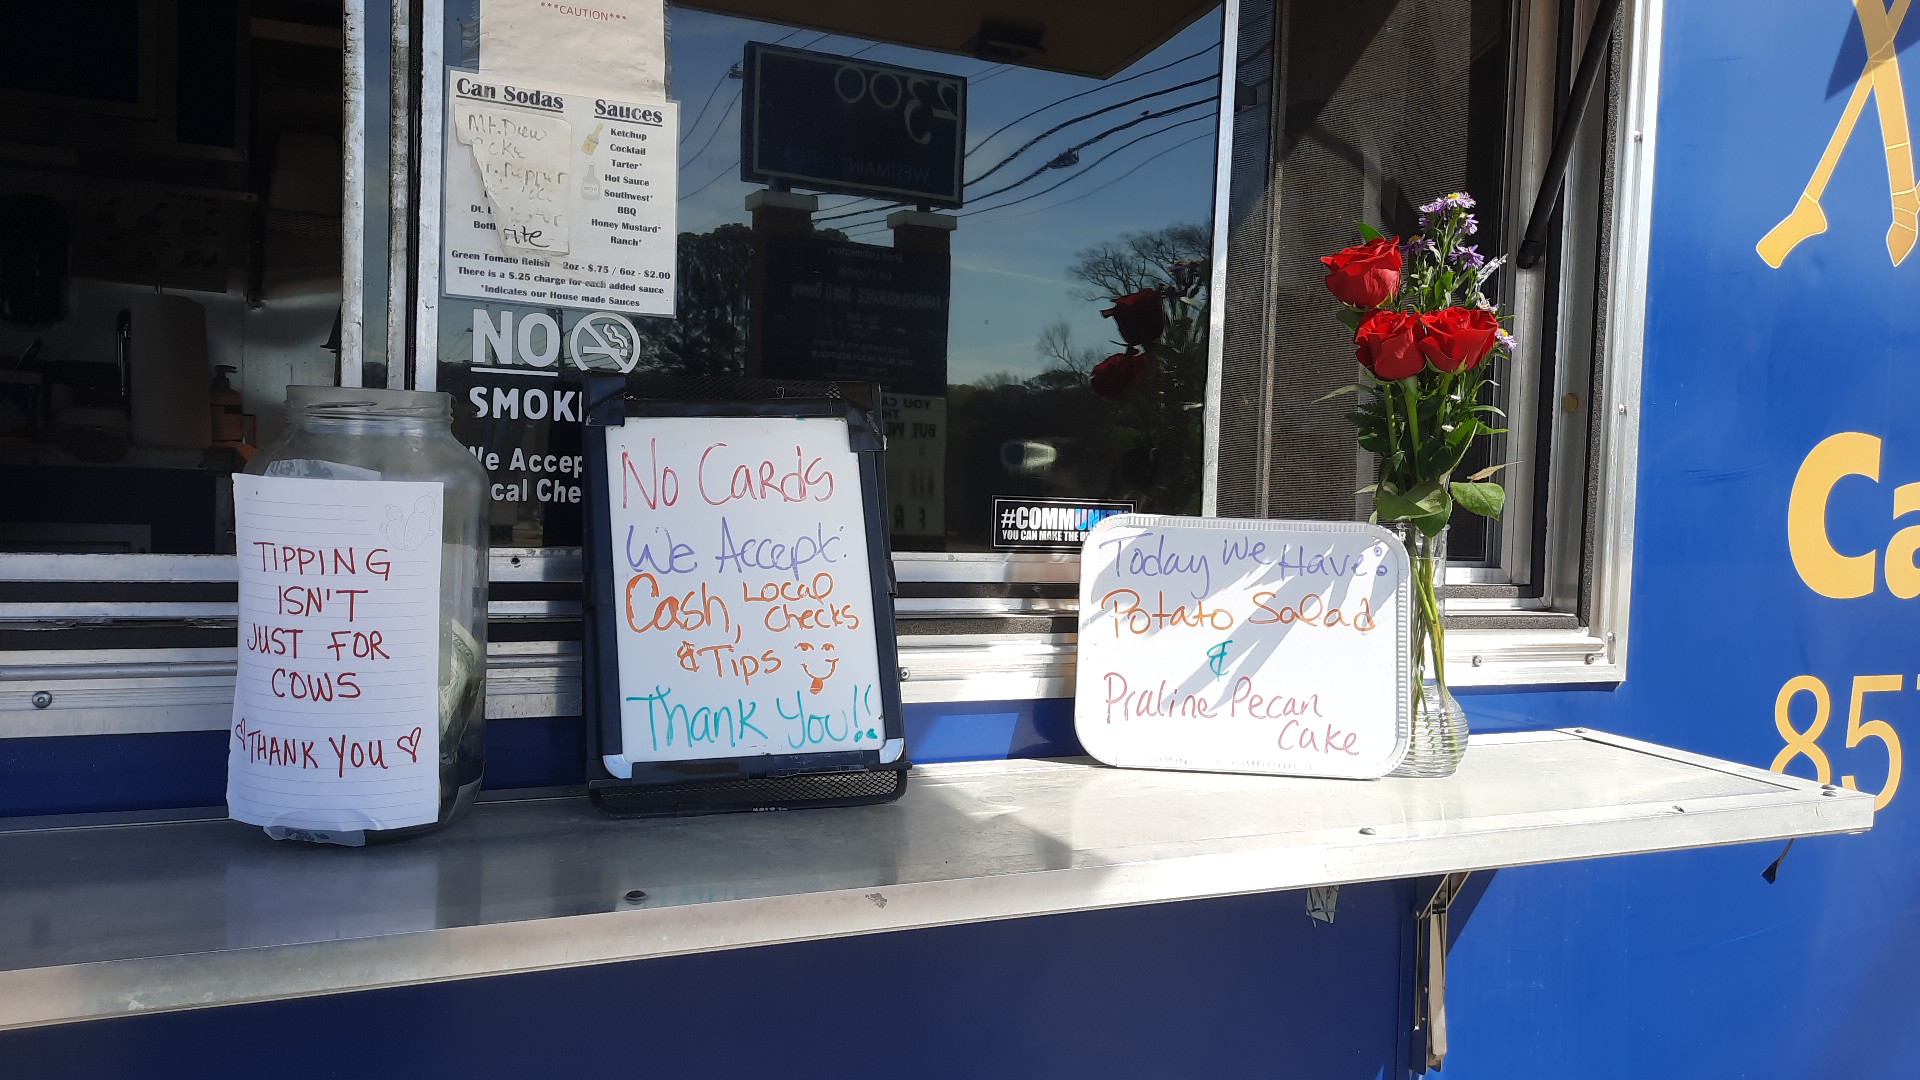 ***CAUTION***
Can Sodas
Mt. Dew
Coke
Dr. Pepper
Dt.
rite
Sauces
Ketchup
Cocktail
Tarter*
Hot Sauce
Southwest*
BBQ
Honey Mustard*
Ranch*
Green Tomato Relish 2oz - $.75 / 6oz - $2.00
There is a $.25 charge for each added sauce
*Indicates our House made Sauces
NO
SMOKI
We Accep
cal Che
TIPPING
ISN'T
JUST FOR
COWS
THANK YOU
No Cards
We Accept:
Cash, Local Checks
& Tips
Thank You!!
2300
WESTMAIN
#COMMUNITY
YOU CAN MAKE THE D
Today We Have:
Potato Salad
&
Praline Pecan
Cake
Ca
857